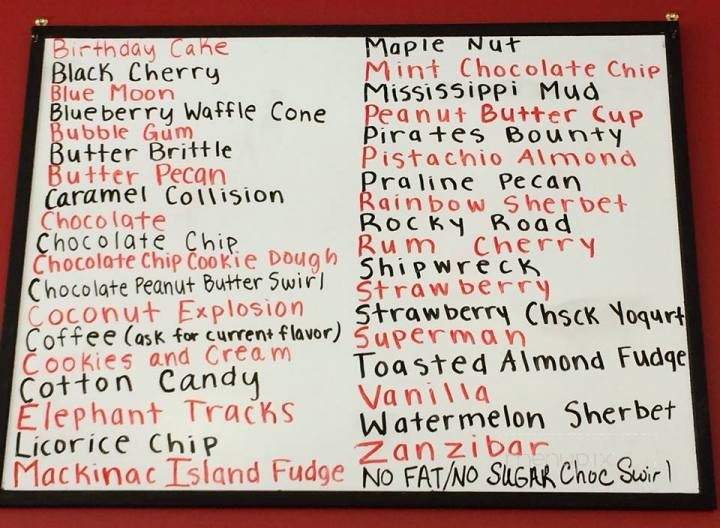 Birthday Cake
Black Cherry
Blue Moon
Blueberry Waffle Cone
Bubble Gum
Butter Brittle
Butter Pecan
Caramel Collision
Chocolate
Chocolate Chip
Chocolate Chip Cookie Dough
Chocolate Peanut Butter Swirl
Coconut Explosion
Coffee (ask for current flavor)
Cookies and Cream
Cotton Candy
Elephant Tracks
Licorice Chip
Mackinac Island Fudge
Maple Nut
Mint Chocolate Chip
Mississippi Mud
Peanut Butter Cup
Pirates Bounty
Pistachio Almond
Praline Pecan
Rainbow Sherbet
Rocky Road
Rum Cherry
Shipwreck
Strawberry
Strawberry Chsck Yogurt
Superman
Toasted Almond Fudge
Vanilla
Watermelon Sherbet
Zanzibar
NO FAT/NO SUGAR Choc Swirl